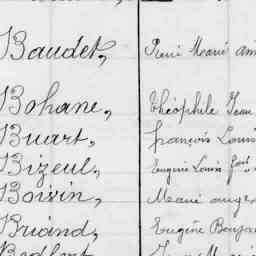 Baudet, Pierre Marie
Bohane, Théophile Jean
Buart, François Louis
Bizeul, Eugène Louis
Boivin, Marie ange
Briand, Eugène